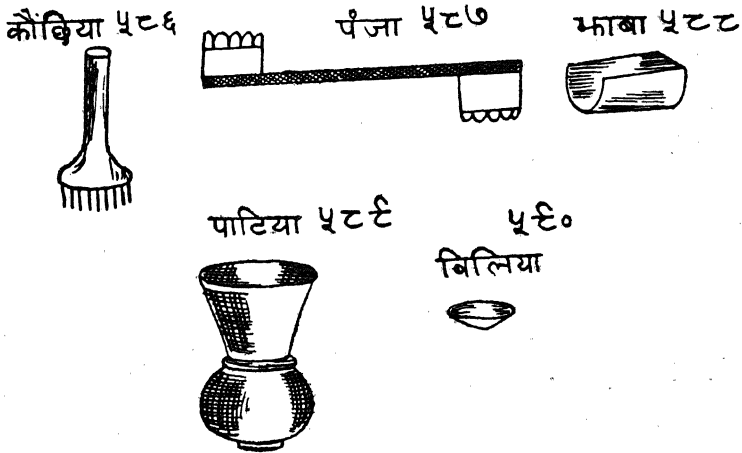 कौंछिया ५८६
पंजा ५८७
झाबा ५८८
पाटिया ५८९
५९०
बिलिया